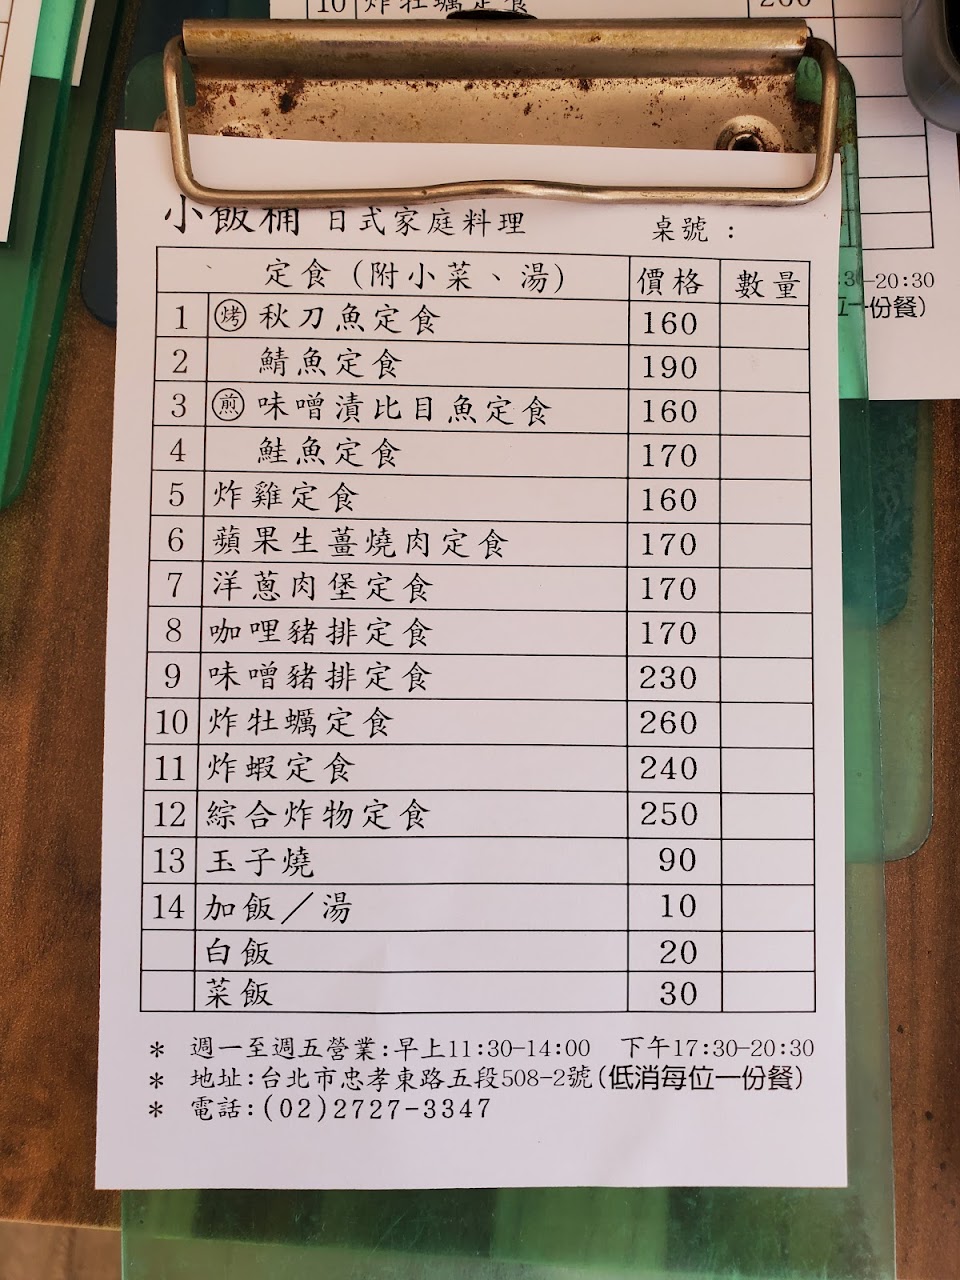 10 炸牡蠣定食 260
小飯桶 日式家庭料理 桌號：
定食（附小菜、湯） 價格 數量
1 烤 秋刀魚定食 160
2 鯖魚定食 190
3 煎 味噌漬比目魚定食 160
4 鮭魚定食 170
5 炸雞定食 160
6 蘋果生薑燒肉定食 170
7 洋蔥肉堡定食 170
8 咖哩豬排定食 170
9 味噌豬排定食 230
10 炸牡蠣定食 260
11 炸蝦定食 240
12 綜合炸物定食 250
13 玉子燒 90
14 加飯／湯 10
白飯 20
菜飯 30
＊ 週一至週五營業:早上11:30-14:00 下午17:30-20:30
＊ 地址:台北市忠孝東路五段508-2號(低消每位一份餐)
＊ 電話:(02)2727-3347
-20:30
一份餐)